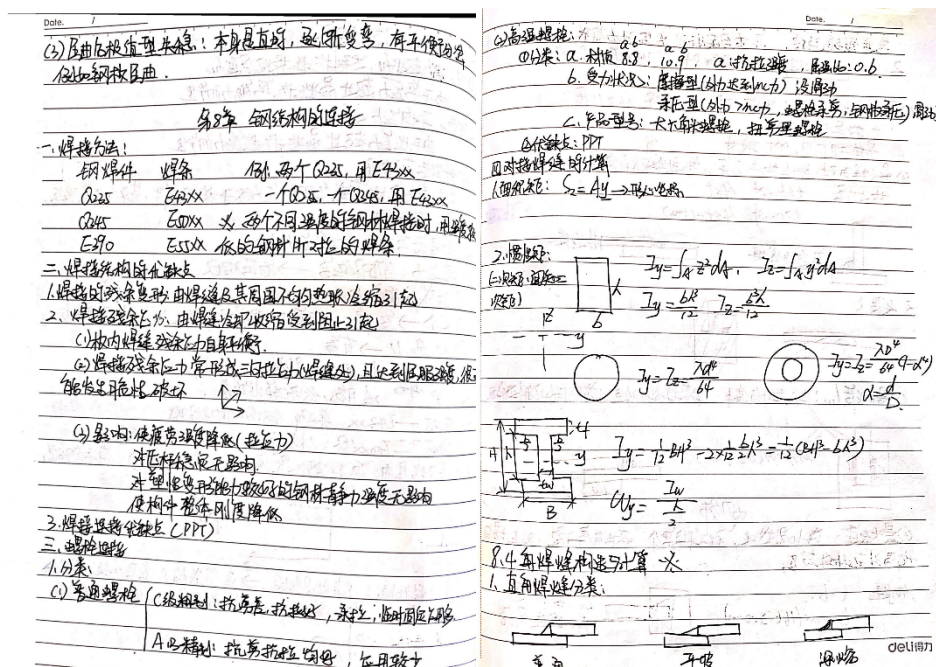 Date.
(3)屈曲后极值型失稳：本身是直的，逐渐变弯，有平衡
例如钢板屈曲．
第8章 钢结构的连接
一.焊接方法：
钢焊件 焊条 例：两个Q235，用E43xx
Q235 E43xx 一个Q235，一个Q345，用E43xx
Q345 E50xx 两个不同强度的钢材焊接时，用强度
E390 E55xx 低的钢材所对应的焊条．
二.焊接结构的优缺点
1.焊接的残余变形：由焊缝及其周围不均匀热胀冷缩引起
2．焊接残余应力：由焊缝冷却收缩受到阻止引起
(1)板内焊缝残余应力自身平衡．
(2)焊接残余应力常形成三对拉应力(焊缝处)，且达到屈服强度，
能发生脆性破坏
(3)影响：使疲劳强度降低(拉应力)
对压杆稳定无影响
对塑性变形能力较好的钢材静力强度无影响
使构件整体刚度降低
3.焊接连接优缺点(PPT)
三.螺栓连接
1.分类：
(1)普通螺栓
C级粗制：抗剪差，抗拉好，承拉，临时固定
A B精制：抗剪抗拉均好，应用较少
Date.
(2)高强螺栓：
a b a b
①分类：a.材质 8.8，10.9，a：抗拉强度，屈强比：0.6
b.受力状况：摩擦型(外力达到 ) 没滑动
承压型(外力> 力，螺栓承剪，钢板承压)
c.产品型号：大六角头螺栓，扭剪型螺栓
②优缺点：PPT
四对接焊缝的计算
1.面积矩：Sz=Ay→形心坐标
2.惯性矩：
h
b
Iy=∫A z²dA， Iz=∫A y²dA
Iy=bh³/12 Iz=b³h/12
z
y
Iy=Iz=πd⁴/64
Iy=Iz=πD⁴/64(1-α⁴)
α=d/D．
H h
B
y
Iy=1/12BH³-2×1/12 b/2 h³=1/12(BH³-bh³)
8.4角焊缝构造与计算
1.直角焊缝分类：
deli得力